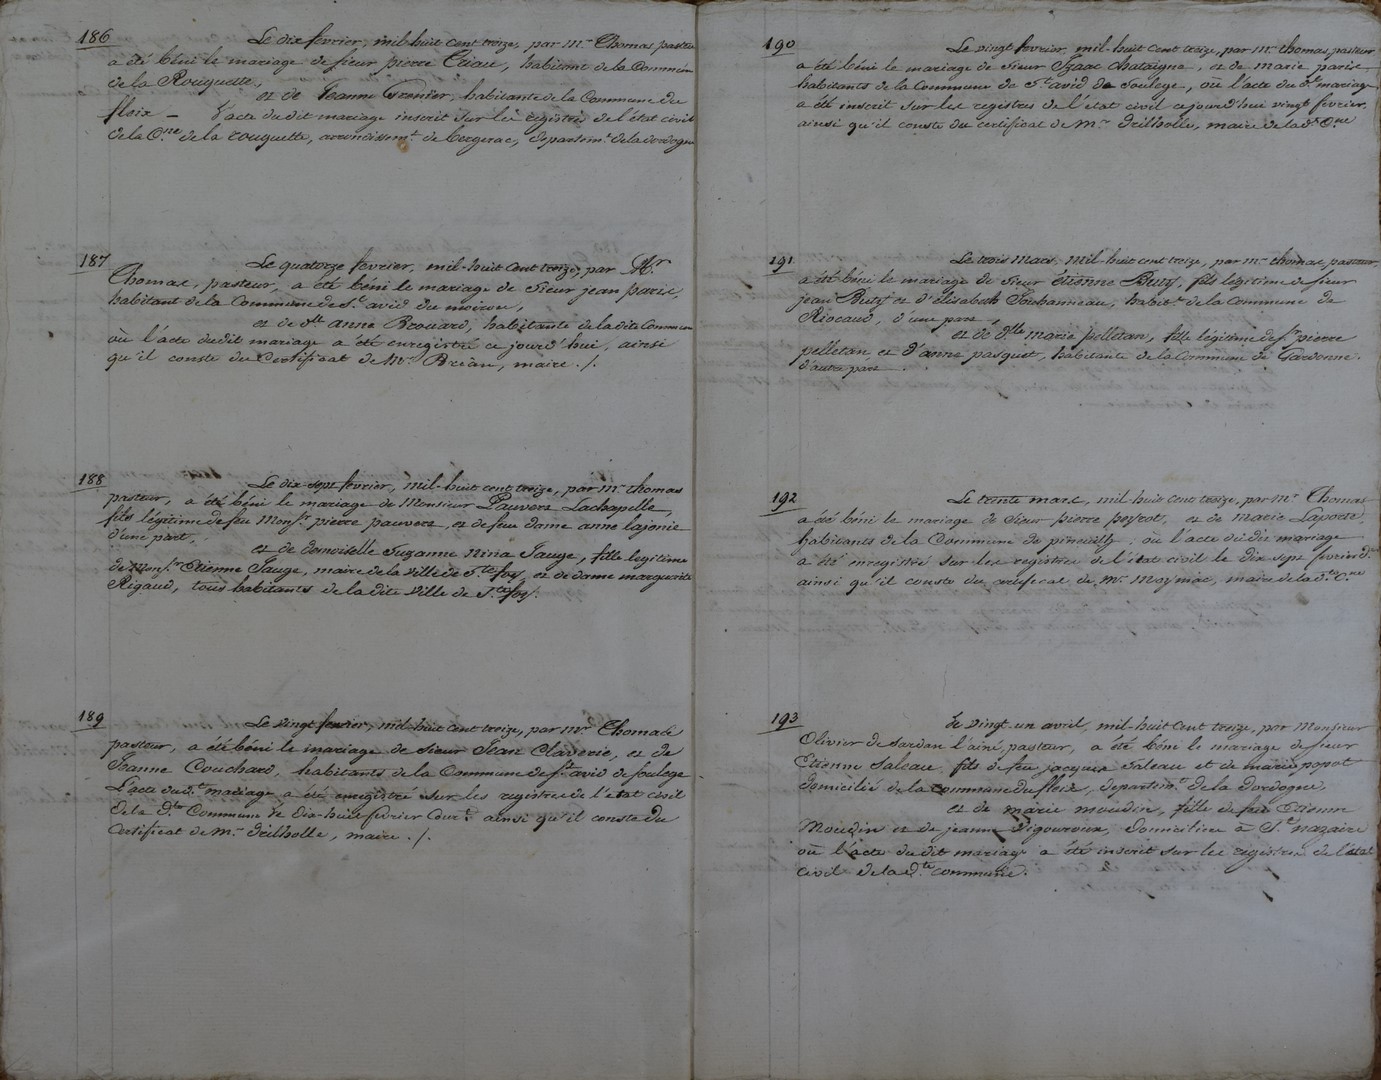 186
Le dix fevrier, mil-huit cent treize, par mr Thomas pasteur
a été béni le mariage de sieur pierre Eriaut, habitant de la Commune
de la Rouquette,
et de Jeanne Grenier, habitante de la Commune du
fleix - l'acte du dit mariage inscrit sur les registres de l'état civil
de la Cne de la rouquette, arrondissemt de bergerac, departemt de la dordogne
187
Le quatorze fevrier, mil-huit cent treize, par Mr
Thomas, pasteur, a été béni le mariage de Sieur jean paris,
habitant de la Commune de St avid du moiron,
et de dlle anne Brouard, habitante de la dite Commune
où l'acte du dit mariage a été enregistré ce jourd'hui, ainsi
qu'il conste du Certificat de Mr Brian, maire ./.
188
Le dix sept fevrier, mil-huit cent treize, par mr thomas
pasteur, a été béni le mariage de Monsieur Pauvert Lachapelle,
fils légitime de feu Monsr pierre pauvert, et de feu dame anne lajonie
d'une part,
et de demoiselle Suzanne Nina Jauge, fille legitime
de Monsr Etienne Jauge, maire de la ville de Ste foy, et de dame marguerite
Rigaud, tous habitants de la dite ville de Ste foy.
189
Le vingt fevrier, mil-huit cent treize, par mr Thomas
pasteur, a été béni le mariage de Sieur Jean Claverie, et de
Jeanne Couchard, habitants de la Commune de St avid de soulege
L'acte du dt mariage a été enregistré sur les registres de l'état civil
de la dte Commune le dix-huit fevrier Court ainsi qu'il conste du
Certificat de mr drilholle, maire ./.
190
Le vingt fevrier, mil-huit cent treize, par mr thomas, pasteur
a été béni le mariage de Sieur Izaac chataigne, et de marie paris
habitants de la Commune de St avid de Soulege, où l'acte du dt mariage
a été inscrit sur les registres de l'état civil cejourd'hui vingt fevrier,
ainsi qu'il conste du certificat de Mr drilholle, maire de la dte Cne
191
Le trois mars, mil-huit cent treize, par mr thomas, pasteur,
a été béni le mariage de Sieur étienne Buty, fils légitime de sieur
jean Buty et d'élisabeth Soubanneau, habitt de la Commune de
Riocaud, d'une part,
et de dlle marie pelletan, fille légitime de Sr pierre
pelletan et d'anne pasquet, habitante de la Commune de Gardonne.
d'autre part.
192
Le trente mars, mil-huit cent treize, par Mr Thomas
a été béni le mariage de Sieur pierre peyrot, et de marie Laporte,
habitants de la Commune de pineuilh, où l'acte du dit mariage
a été enregistré sur les registres de l'état civil le dix sept
ainsi qu'il conste du certificat de Mr Moyniac, maire de la dte Cne
193
Le vingt un avril, mil-huit Cent treize, par Monsieur
Olivier de Sardan l'ainé, pasteur, a été béni le mariage de sieur
Etienne Saleau, fils de feu jacques Saleau et de marie popot
domicilié de la commune du fleix, departemt de la dordogne,
et de marie moudin, fille de feu Etienne
Moudin et de jeanne Vigouroux, domiciliée à St nazaire
où l'acte du dit mariage a été inscrit sur les registres de l'état
civil de la dte commune.